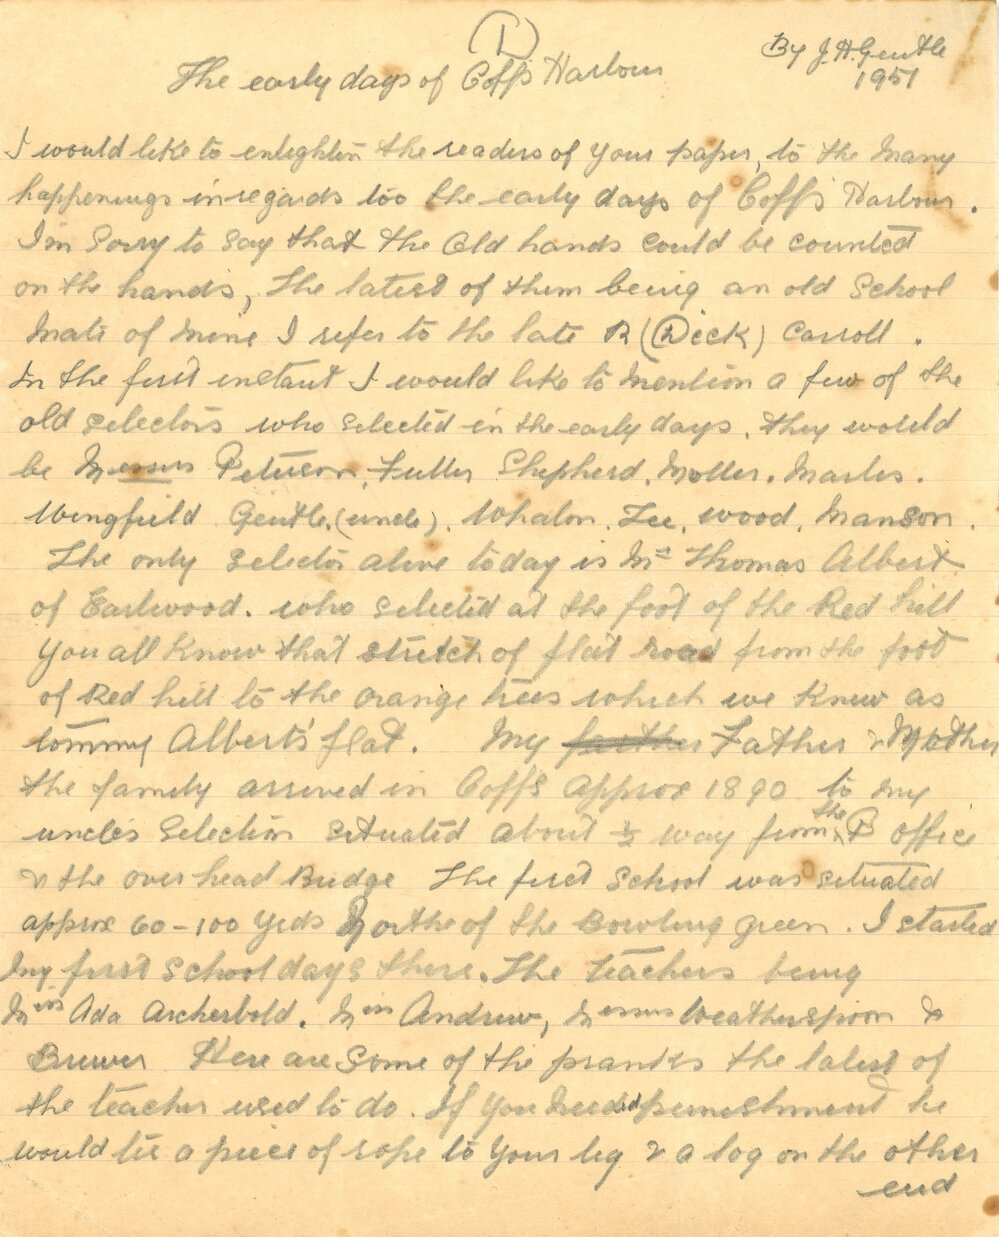 1
By J. H. Gentle
1951
The early days of Coffs Harbour
I would like to enlighten the readers of your paper, to the many
happenings in regards too the early days of Coffs Harbour.
I'm Sorry to say that the Old hands could be counted
on the hands, The latest of them being an old School
Mate of Mine I refer to the late R (Dick) Carroll.
In the first instant I would like to Mention a few of the
old selectors who selected in the early days. they would
be Messurs Peterson, Fuller Shepherd. Moller. Marles.
Wingfield Gentle. (uncle). Whalon. Lee. wood. Manson.
The only selector alive today is Mr Thomas Albert
of Earlwood. who selected at the foot of the Red hill
You all know that stretch of flat road from the foot
of Red hill to the orange trees which we knew as
tommy Albert's flat. My Father & Mother
the family arrived in Coffs approx 1890 to my
uncle's Selection situated about ½ way from the P office
& the over head Bridge The first School was situated
approx 60-100 yrds Northe of the Bowling green. I started
My first School days there. The teachers being
Miss Ada Archerbold. Miss Andrew, Messurs Weatherspoon &
Brewer Here are some of the pranks the latest of
the teacher used to do. If you needed punishment he
would tie a piece of rope to your leg & a log on the other
end